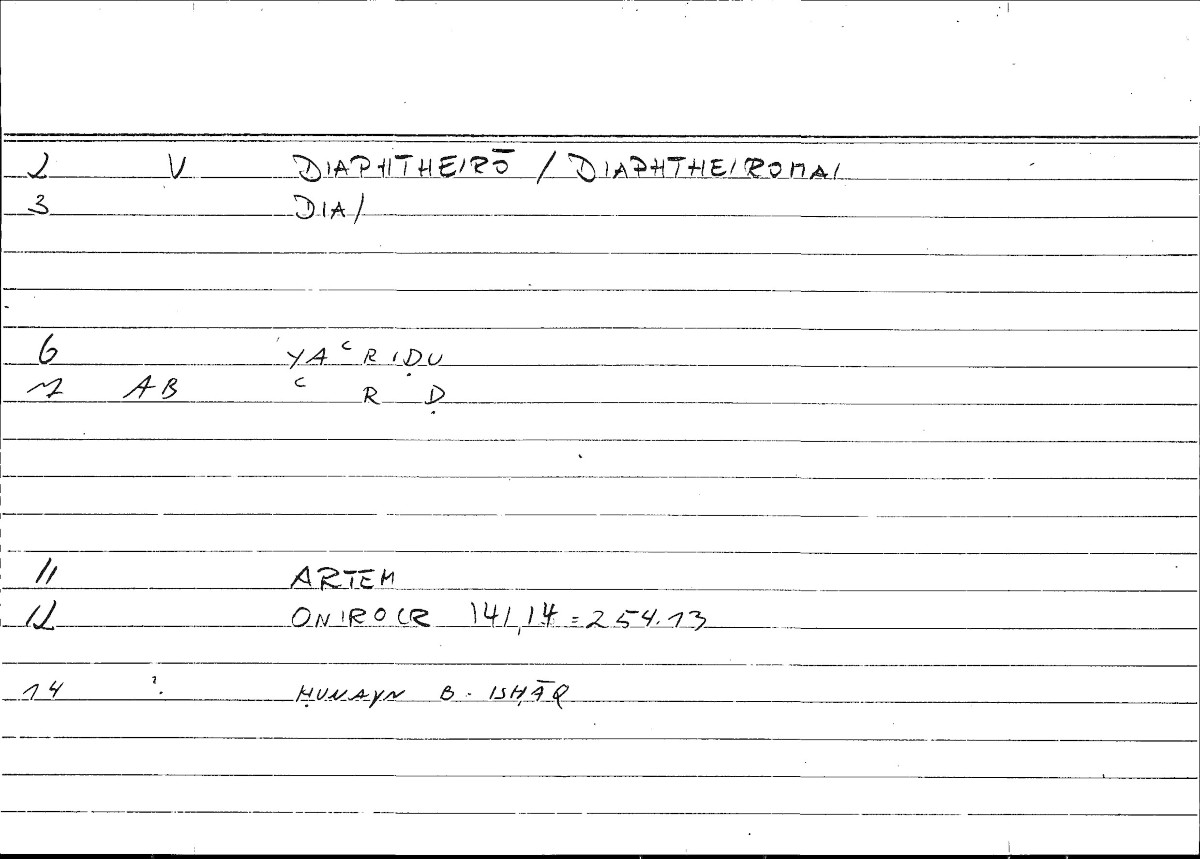 2 V DIAPHTHEIRŌ / DIAPHTHEIROMAI
3 DIA/
6 YAʿRIḌU
7 AB ʿ R Ḍ
11 ARTEM
12 ONIROCR 141,14 = 254.13
14 ? ḤUNAYN B. ISḤĀQ